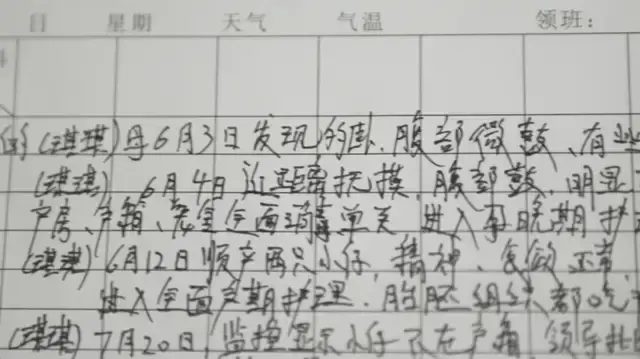 日 星期 天气 气温 领班：
(琪琪)母6月3日发现趴卧、腹部微鼓、有
(琪琪) 6月4日近距离抚摸,腹部鼓,明显
产房、产箱、全面消毒单关 进入孕晚期护
(琪琪)6月12日顺产两只小仔,精神、食欲正常
进入全面产期护理.胎胚组织都吃
(琪琪)7月20日,监控显示小仔不在产箱 领导